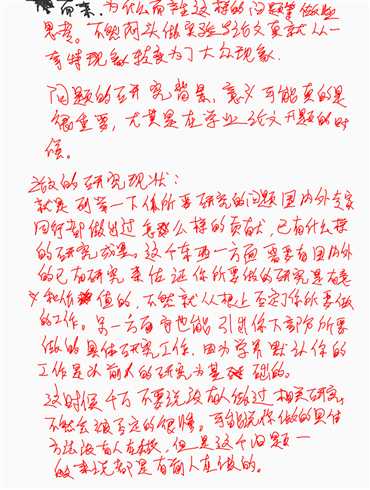 而来. 为什么会产生这样的问题等做些
思考。不能两头做实验写论文真就从一
个特现象转变为了大众现象.
问题的研究背景、意义可能真的是
很重要，尤其是在学业论文开题的时
候。
做的研究现状：
就是列举一下你所要研究的问题国内外专家
同行都做出过怎么样的贡献，已有什么样
的研究成果。这个东西一方面需要有国内外
的已有研究来佐证你所要做的研究是有意
义和价值的，不然就从根上否定了你所要做
的工作。另一方面它也能引出你下部分所要
做的具体研究工作，因为学界默认你的
工作是以前人的研究为基础的。
这时候千万不要说没有人做过相关研究，
不然会被否定的很惨。可能说你做的具体
方法没有人在做，但是这个问题一
般来说都是有前人在做的。